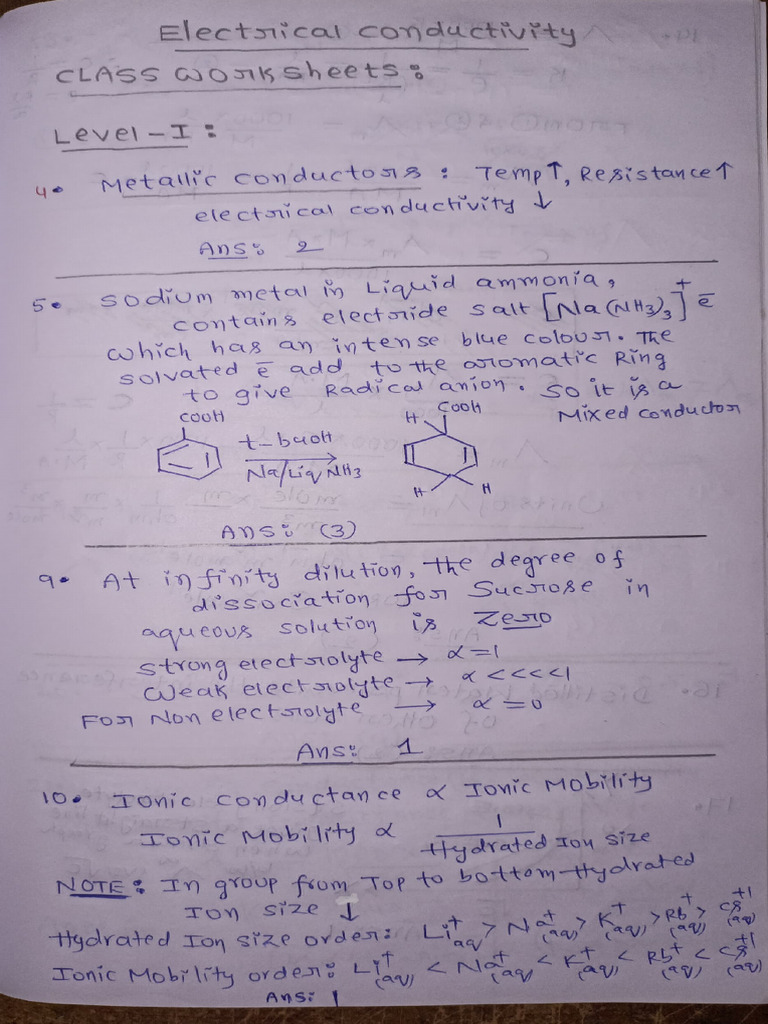 Electrical conductivity
CLASS WORKSheets:
Level-I:
4. Metallic conductors: Temp↑, Resistance↑
electrical conductivity ↓
Ans: 2
5. Sodium metal in Liquid ammonia,
contains electride salt [Na(NH3)3]+ ē
which has an intense blue colour. The
solvated ē add to the aromatic Ring
to give Radical anion. So it is a
Mixed conductor
COOH
t-buoH
Na/Liq NH3
H COOH
H H
Ans: (3)
9. At infinity dilution, the degree of
dissociation for Sucrose in
aqueous solution is Zero
strong electrolyte → α=1
weak electrolyte → α<<<<1
For Non electrolyte → α=0
Ans: 1
10. Ionic conductance α Ionic Mobility
Ionic Mobility α 1/Hydrated Ion size
NOTE: In group from Top to bottom-Hydrated
Ion size ↓
Hydrated Ion size order: Li+aq > Na+(aq) > K+(aq) > Rb+(aq) > Cs+1(aq)
Ionic Mobility order: Li+(aq) < Na+(aq) < K+(aq) < Rb+(aq) < Cs+1(aq)
Ans: 1